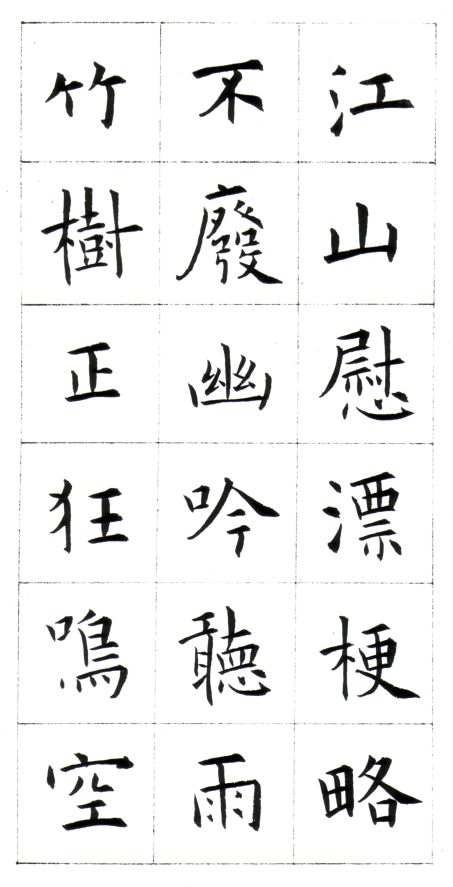 江山慰漂梗略
不廢幽吟聽雨
竹樹正狂鳴空